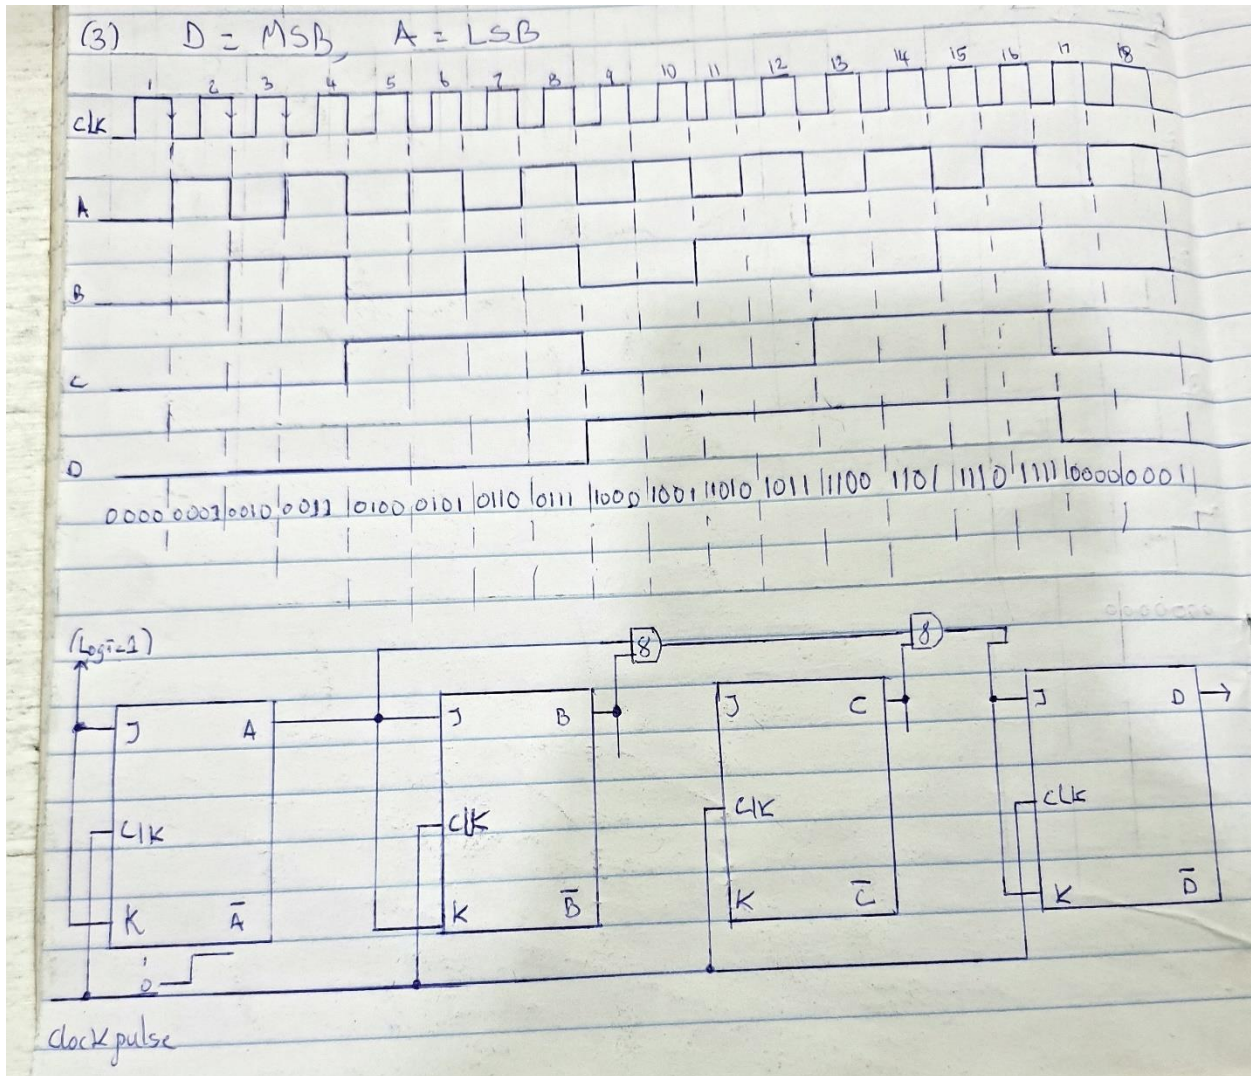 (3) D = MSB, A = LSB
1 2 3 4 5 6 7 8 9 10 11 12 13 14 15 16 17 18
CLK
A
B
C
D
0000 0001 0010 0011 0100 0101 0110 0111 1000 1001 1010 1011 1100 1101 1110 1111 0000 0001
(Logic=1)
& &
J A J B J C J D
CLK CLK CLK CLK
K A̅ K B̅ K C̅ K D̅
1
0
Clock pulse